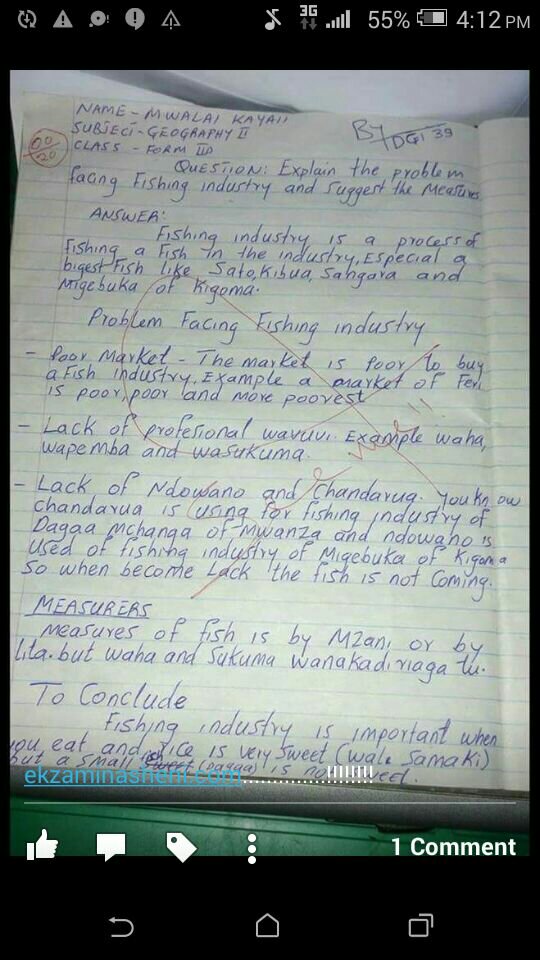 3G 55% 4:12 PM
NAME - MWALAI KAYAII
SUBJECT - GEOGRAPHY II
CLASS - FORM III
By
00
20
QUESTION: Explain the problem
facing Fishing industry and suggest the Measures
ANSWER:
Fishing industry is a process of
Fishing a Fish in the industry. Especial a
bigest Fish like Sato, Kibua, Sangara and
Migebuka of Kigoma.
Problem Facing Fishing industry
- Poor Market - The market is poor to buy
a Fish industry. Example a market of Feri
is poor, poor and more poorest
- Lack of profesional wavuvi. Example waha,
wapemba and wasukuma.
- Lack of Ndowano and Chandarua. You know
chandarua is using for fishing industry of
Dagaa Mchanga of Mwanza and ndowano is
Used of fishing industry of Migebuka of Kigoma
So when become Lack the fish is not Coming.
MEASURERS
measures of fish is by Mzani or by
Lita. but waha and Sukuma wanakadiriaga tu.
To Conclude
Fishing industry is important when
you eat and rice is very sweet (wali Samaki)
but a small (Dagaa) is not sweet.
ekzaminasheni.com
1 Comment